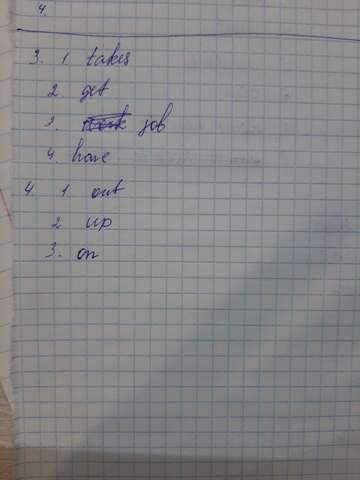 4.
3. 1. takes
2. get
3. job
4. have
4. 1. out
2 up
3. on